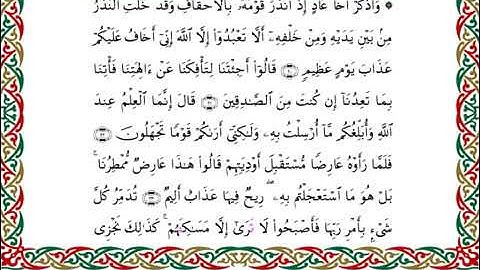 ۞ وَٱذْكُرْ أَخَا عَادٍ إِذْ أَنذَرَ قَوْمَهُۥ بِٱلْأَحْقَافِ وَقَدْ خَلَتِ ٱلنُّذُرُ
مِنۢ بَيْنِ يَدَيْهِ وَمِنْ خَلْفِهِۦٓ أَلَّا تَعْبُدُوٓا۟ إِلَّا ٱللَّهَ إِنِّىٓ أَخَافُ عَلَيْكُمْ
عَذَابَ يَوْمٍ عَظِيمٍ ۝٢١ قَالُوٓا۟ أَجِئْتَنَا لِتَأْفِكَنَا عَنْ ءَالِهَتِنَا فَأْتِنَا
بِمَا تَعِدُنَآ إِن كُنتَ مِنَ ٱلصَّـٰدِقِينَ ۝٢٢ قَالَ إِنَّمَا ٱلْعِلْمُ عِندَ
ٱللَّهِ وَأُبَلِّغُكُم مَّآ أُرْسِلْتُ بِهِۦ وَلَـٰكِنِّىٓ أَرَىٰكُمْ قَوْمًا تَجْهَلُونَ ۝٢٣
فَلَمَّا رَأَوْهُ عَارِضًا مُّسْتَقْبِلَ أَوْدِيَتِهِمْ قَالُوا۟ هَـٰذَا عَارِضٌ مُّمْطِرُنَا ۚ
بَلْ هُوَ مَا ٱسْتَعْجَلْتُم بِهِۦ ۖ رِيحٌ فِيهَا عَذَابٌ أَلِيمٌ ۝٢٤ تُدَمِّرُ كُلَّ
شَىْءٍۭ بِأَمْرِ رَبِّهَا فَأَصْبَحُوا۟ لَا يُرَىٰٓ إِلَّا مَسَـٰكِنُهُمْ ۚ كَذَٰلِكَ نَجْزِى